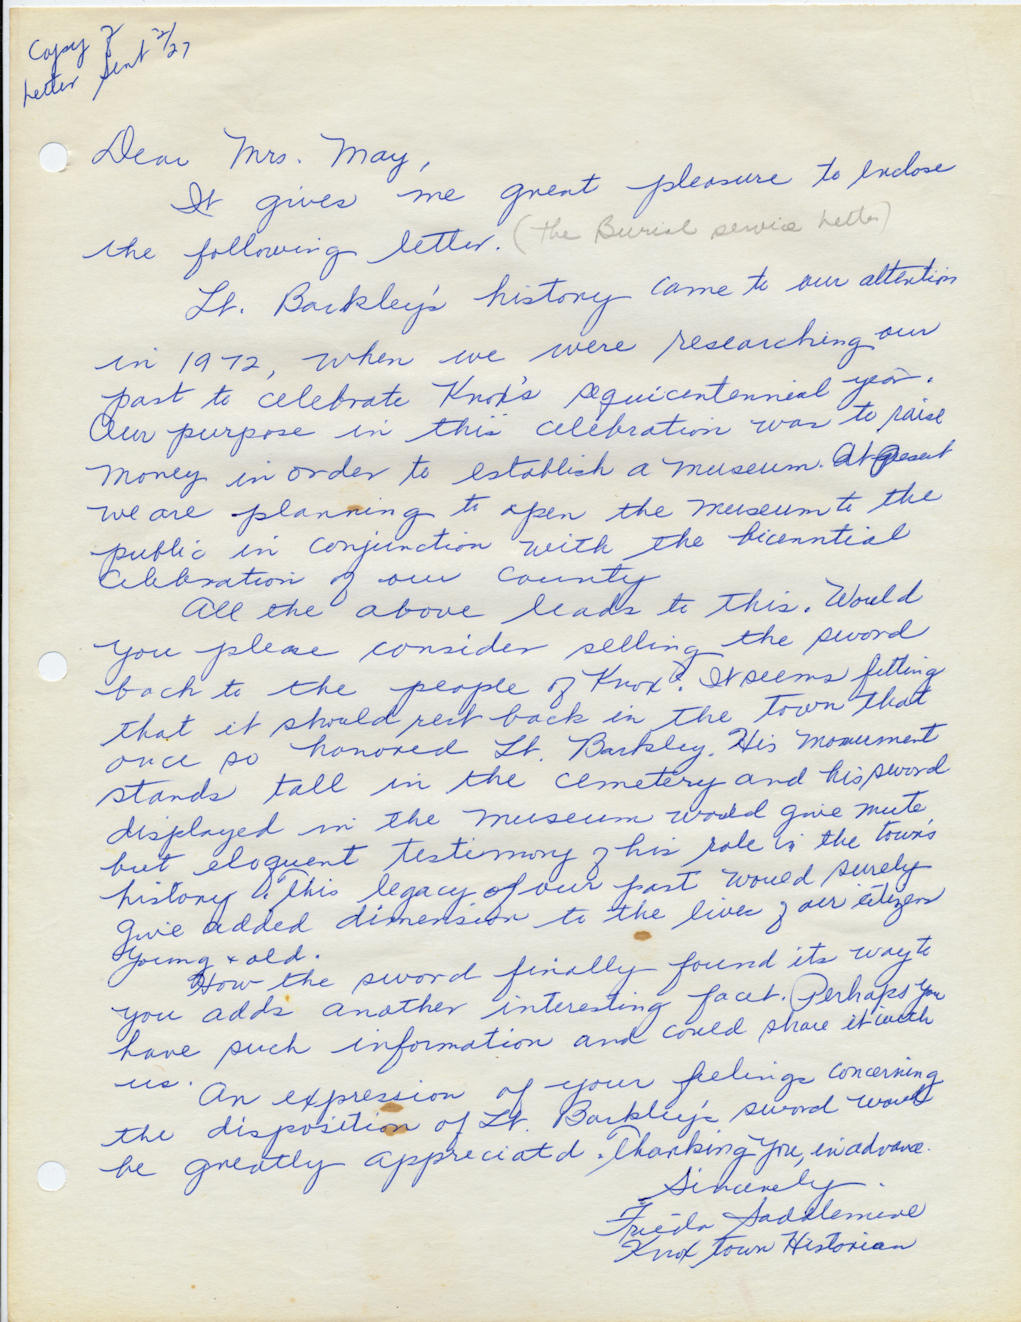 Copy of
Letter Sent 2/27
Dear Mrs. May,
It gives me great pleasure to enclose
the following letter. (the Burial service Letter)
Lt. Barkley's history came to our attention
in 1972, when we were researching our
past to celebrate Knox's sequicentennial year.
Our purpose in this celebration was to raise
money in order to establish a museum. At present
we are planning to open the museum to the
public in conjunction with the bicenntial
celebration of our county
All the above leads to this. Would
you please consider selling the sword
back to the people of Knox? It seems fitting
that it should rest back in the town that
once so honored Lt. Barkley. His monument
stands tall in the cemetery and his sword
displayed in the museum would give mute,
but eloquent testimony of his role in the town's
history. This legacy of our past would surely
give added dimension to the lives of our citizens
young & old.
How the sword finally found its way to
you adds another interesting facet. Perhaps you
have such information and could share it with
us.
An expression of your feelings concerning
the disposition of Lt. Barkley's sword would
be greatly appreciatd. Thanking you, in advance.
Sincerely
Frieda Saddlemire
Knox town Historian